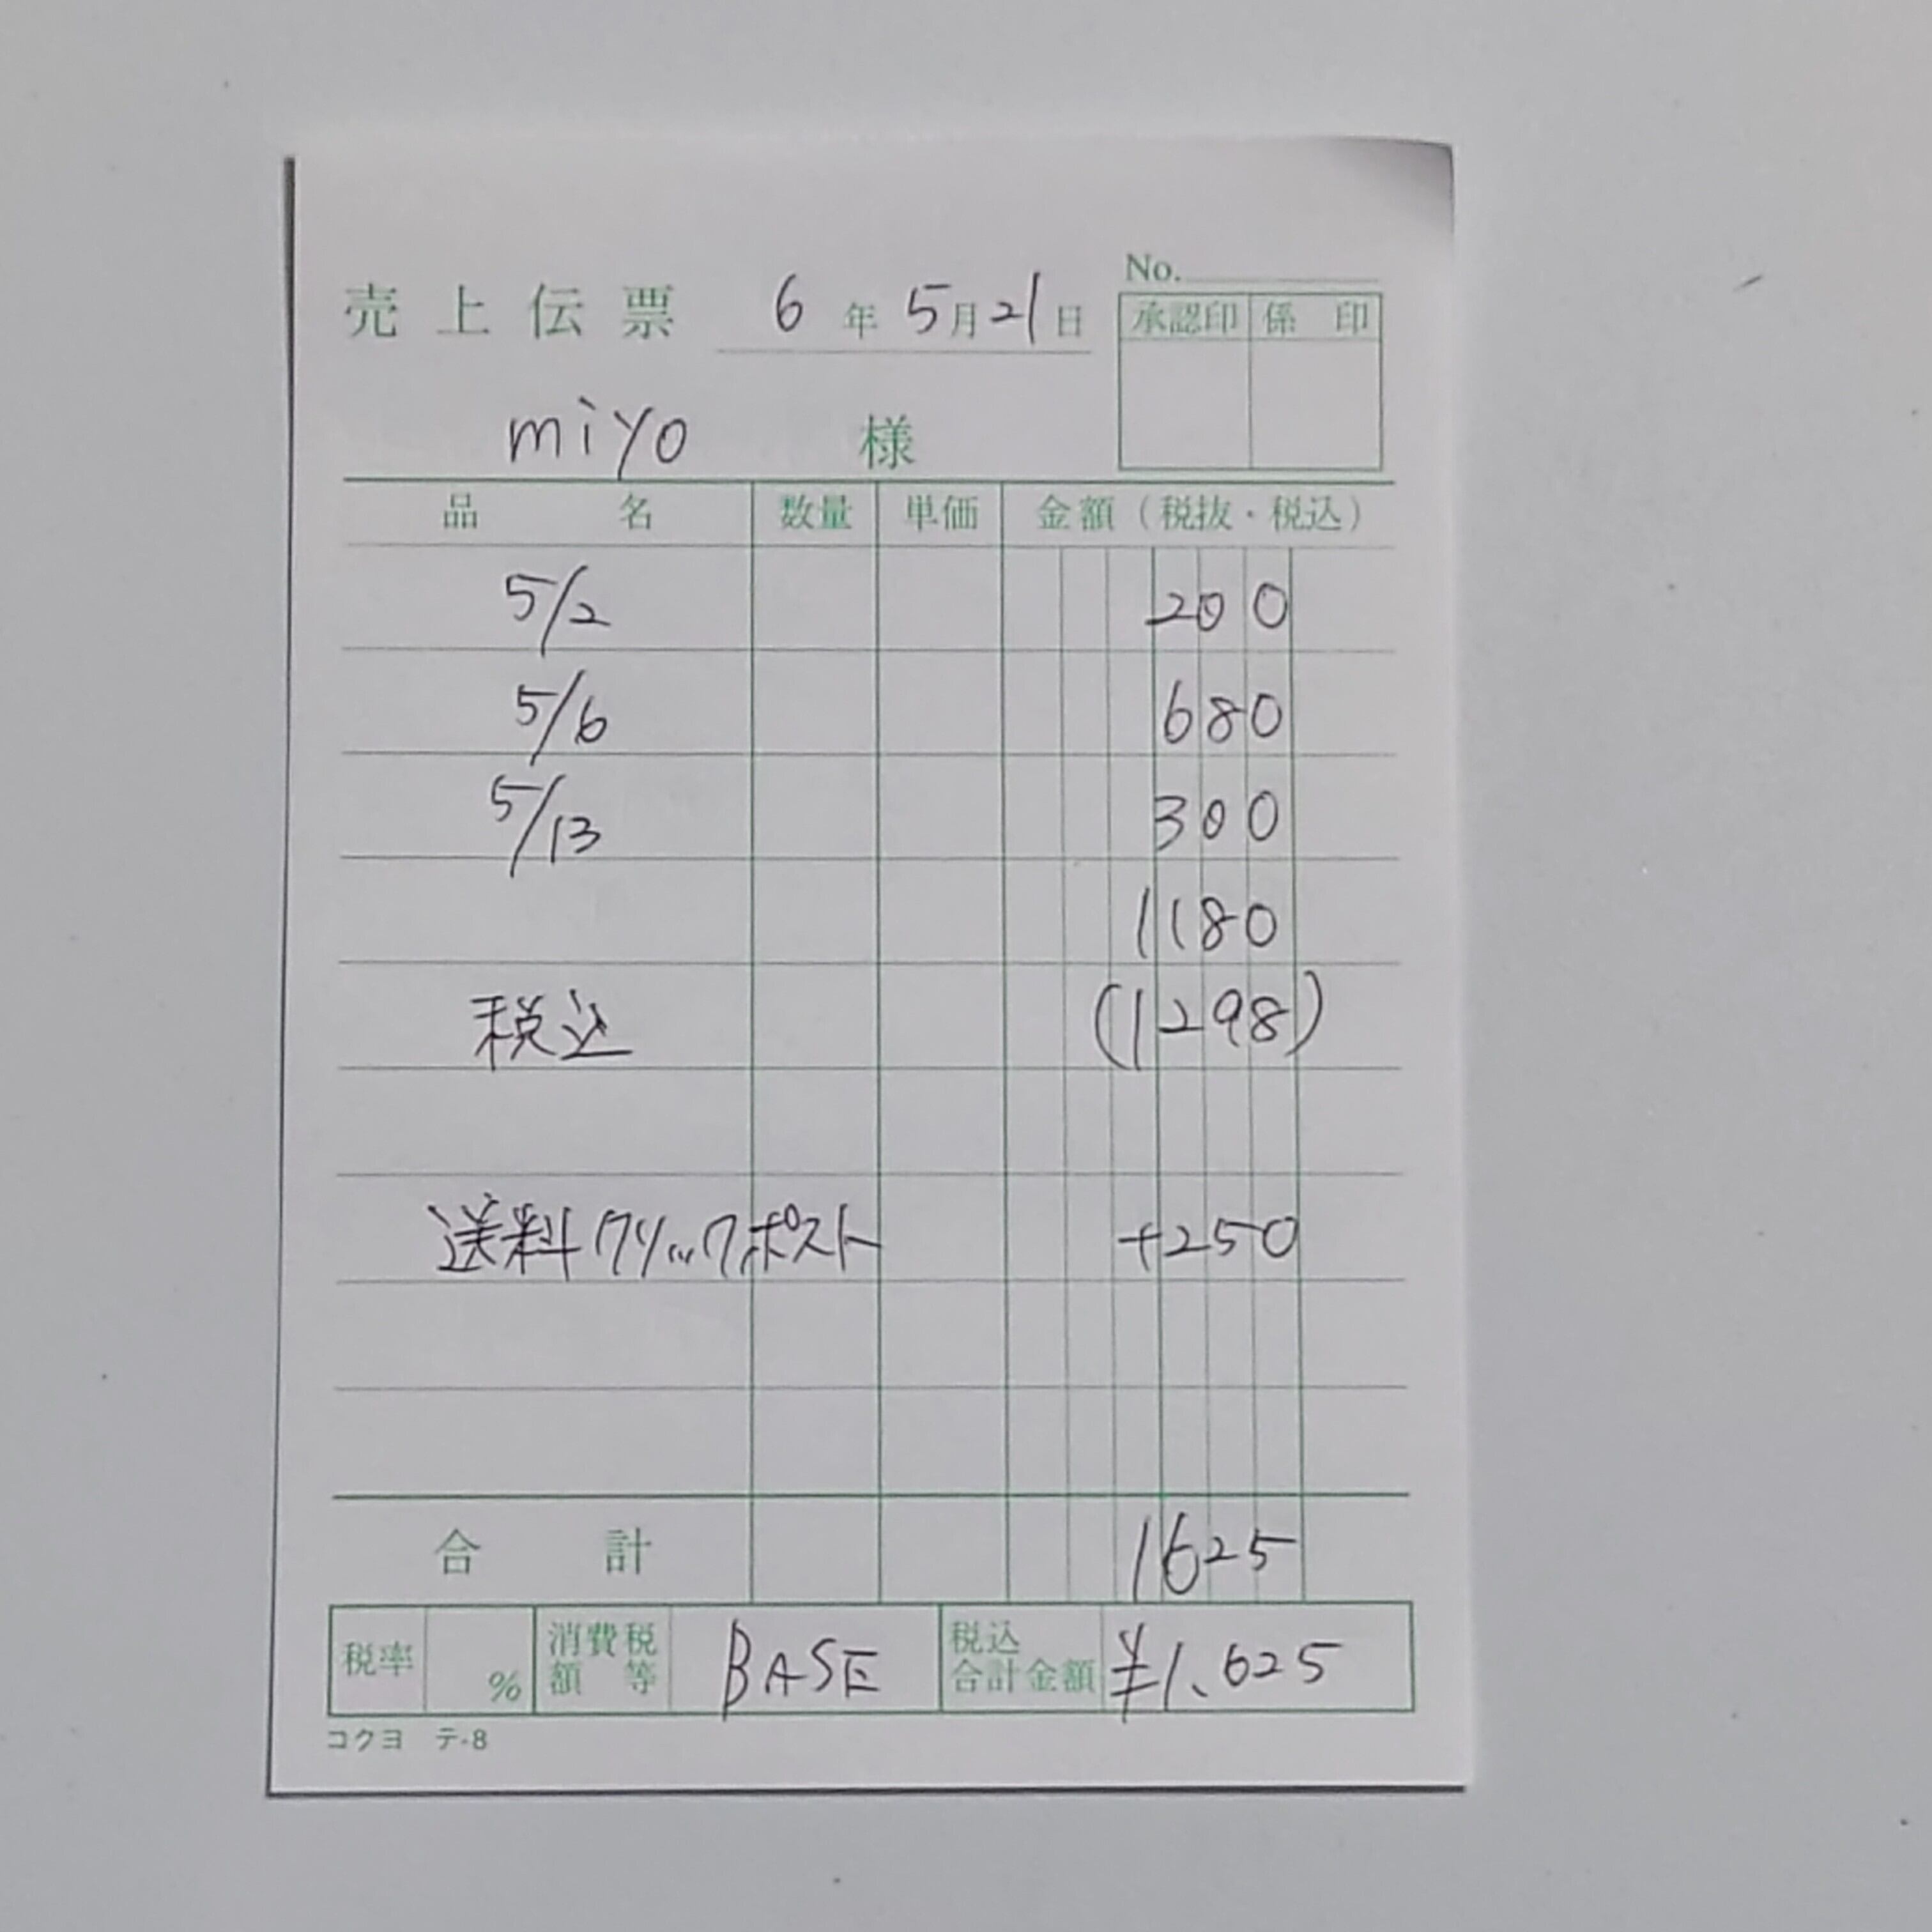 No.
売上伝票 6年5月21日
承認印 係印
miyo 様
品名 数量 単価 金額(税抜・税込)
5/2 200
5/6 680
5/13 300
1180
税込 (1298)
送料クリックポスト +250
合計 1625
税率 % 消費税額等 BASE 税込合計金額 ¥1,625
コクヨ テ-8